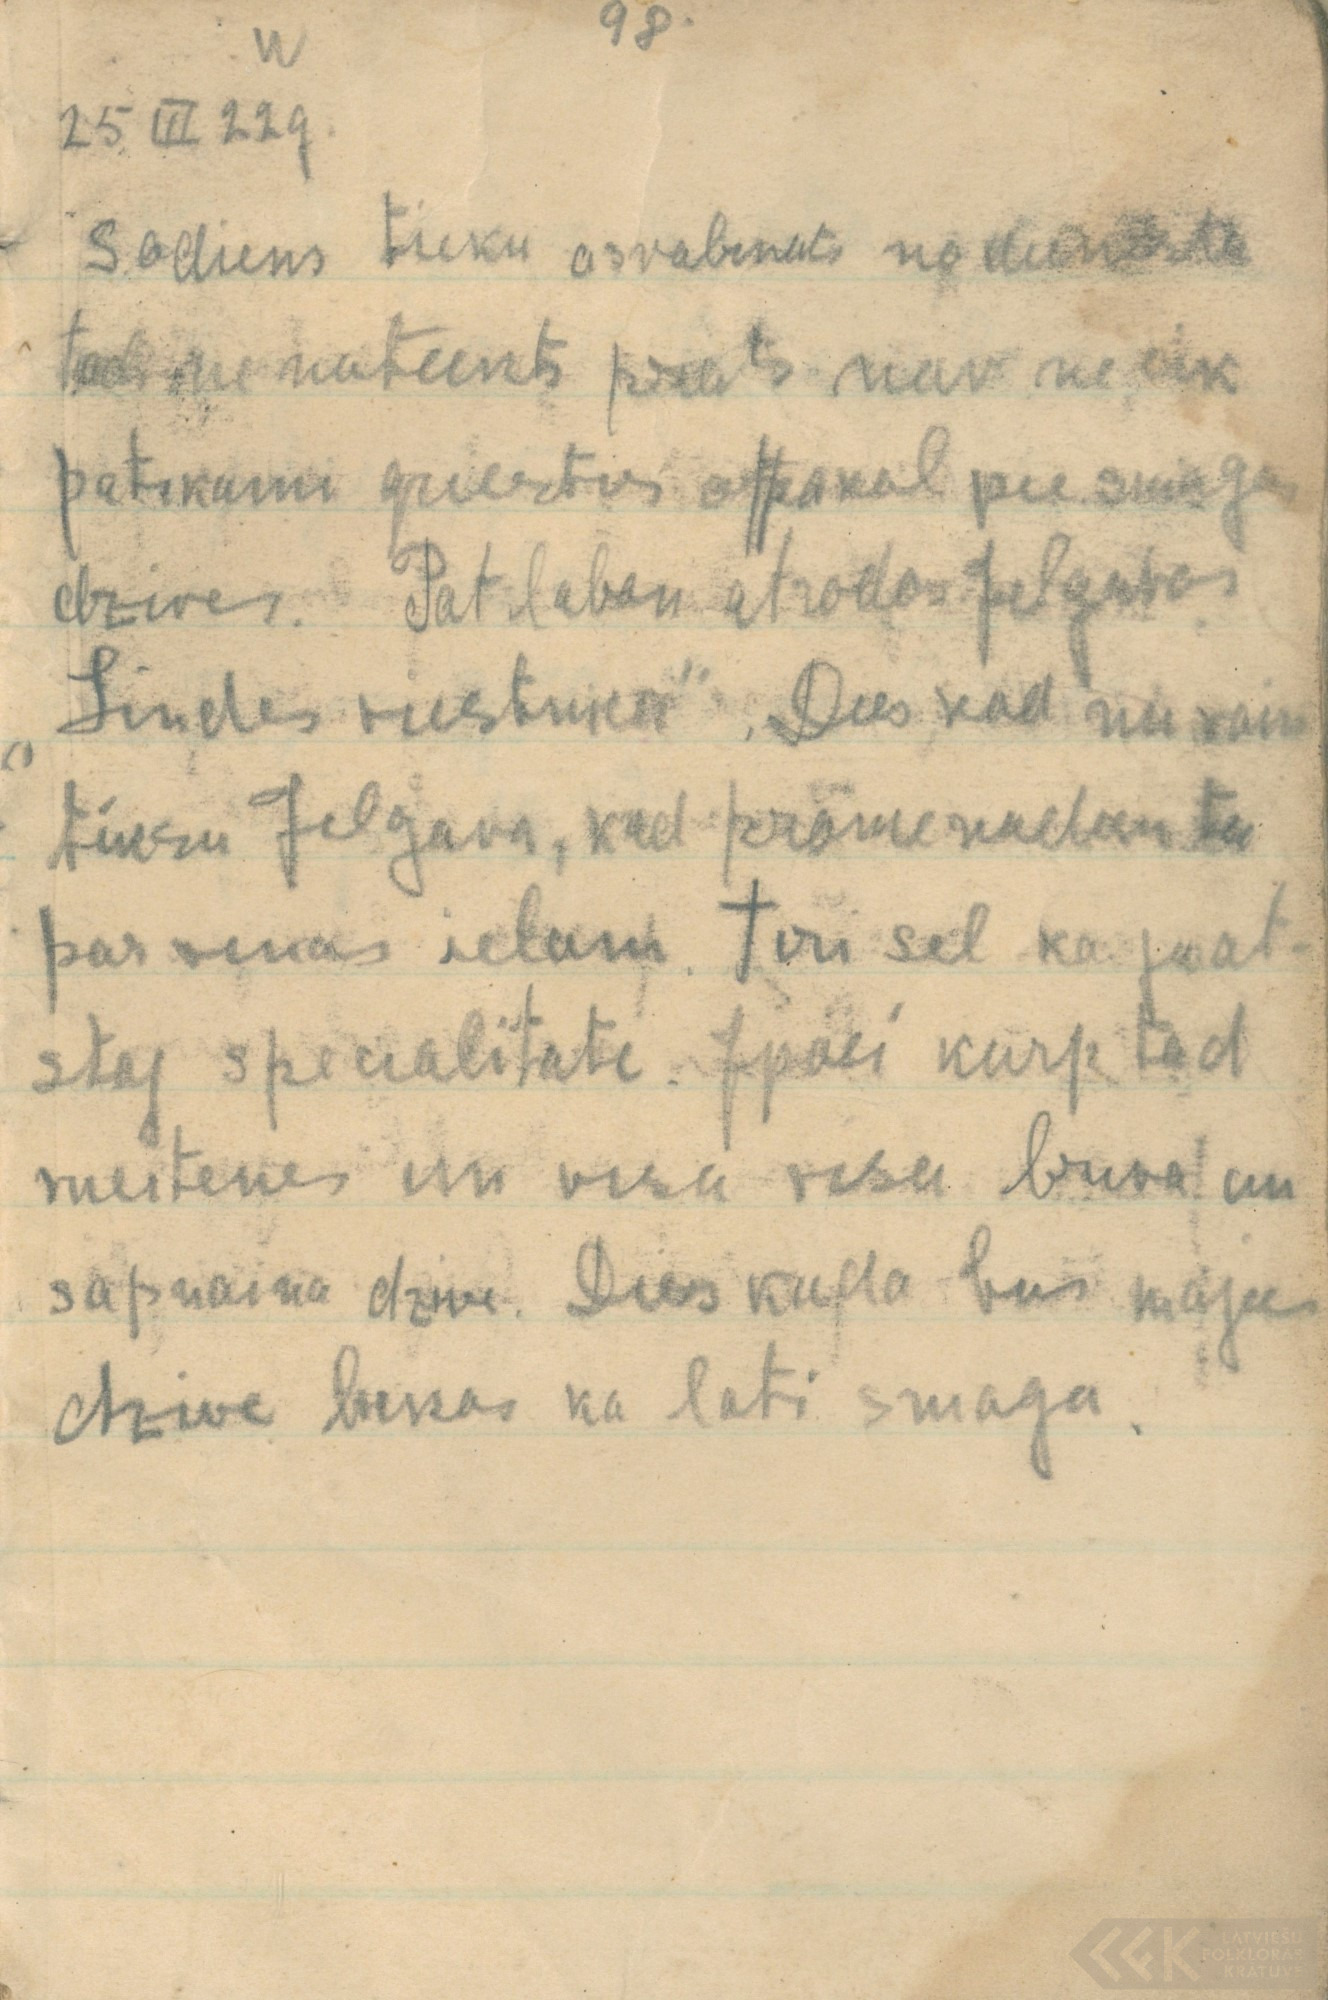 98.
25 III 22g.
Sodiens tieku osvabinats no dienesta
tad ne nateikts prats nav ne cik
patikami griesties atpakal pie smagas
dzives. Pat laban atrodos Jelgavas
"Lindes viesnica". Dies kad nu vairs
tiksu Jelgava, kad promenadeeu ta
par vinas ielam. Ton sel ka ja at-
staj specialitate. Ipasi kurp tad
meitenes un visa visa briva un
sapnaina dzive. Dies kada bus majas
dzive liekas ka loti smaga.
LATVIEŠU
FOLKLORAS
KRĀTUVE